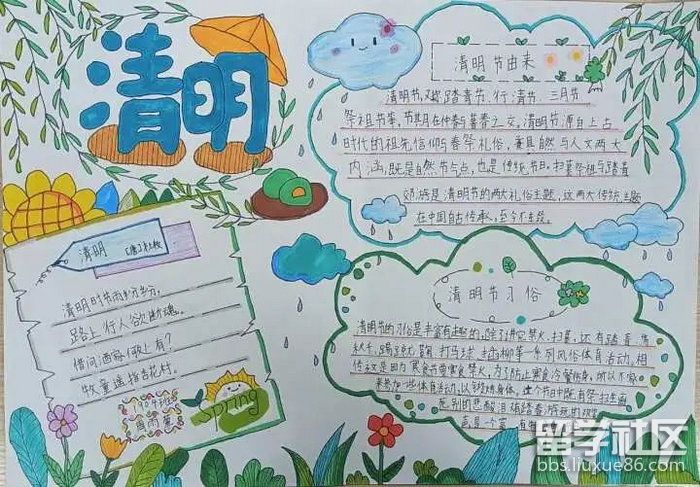 清明
清明节由来
清明节,又称踏青节、行清节、三月节
祭祖节等,节期在仲春与暮春之交。清明节源自上古
时代的祖先信仰与春祭礼俗,兼具自然与人文两大
内涵,既是自然节气点,也是传统节日,扫墓祭祖与踏青
郊游是清明节的两大礼俗主题,这两大传统主题
在中国自古传承,至今不辍。
清明 [唐]杜牧
清明时节雨纷纷。
路上行人欲断魂。
借问酒家何处有?
牧童遥指杏花村。
Spring
清明节习俗
清明节的习俗是丰富有趣的,除了讲究禁火、扫墓,还有踏青、荡
秋千、蹴鞠、打马球、插柳等一系列风俗体育活动。相
传这是因为寒食节要寒食禁火,为了防止寒食冷餐伤身,所以大家
来参加一些体育活动,以锻炼身体。这个节日中既有祭扫
留学社区
bbs.liuxue86.com